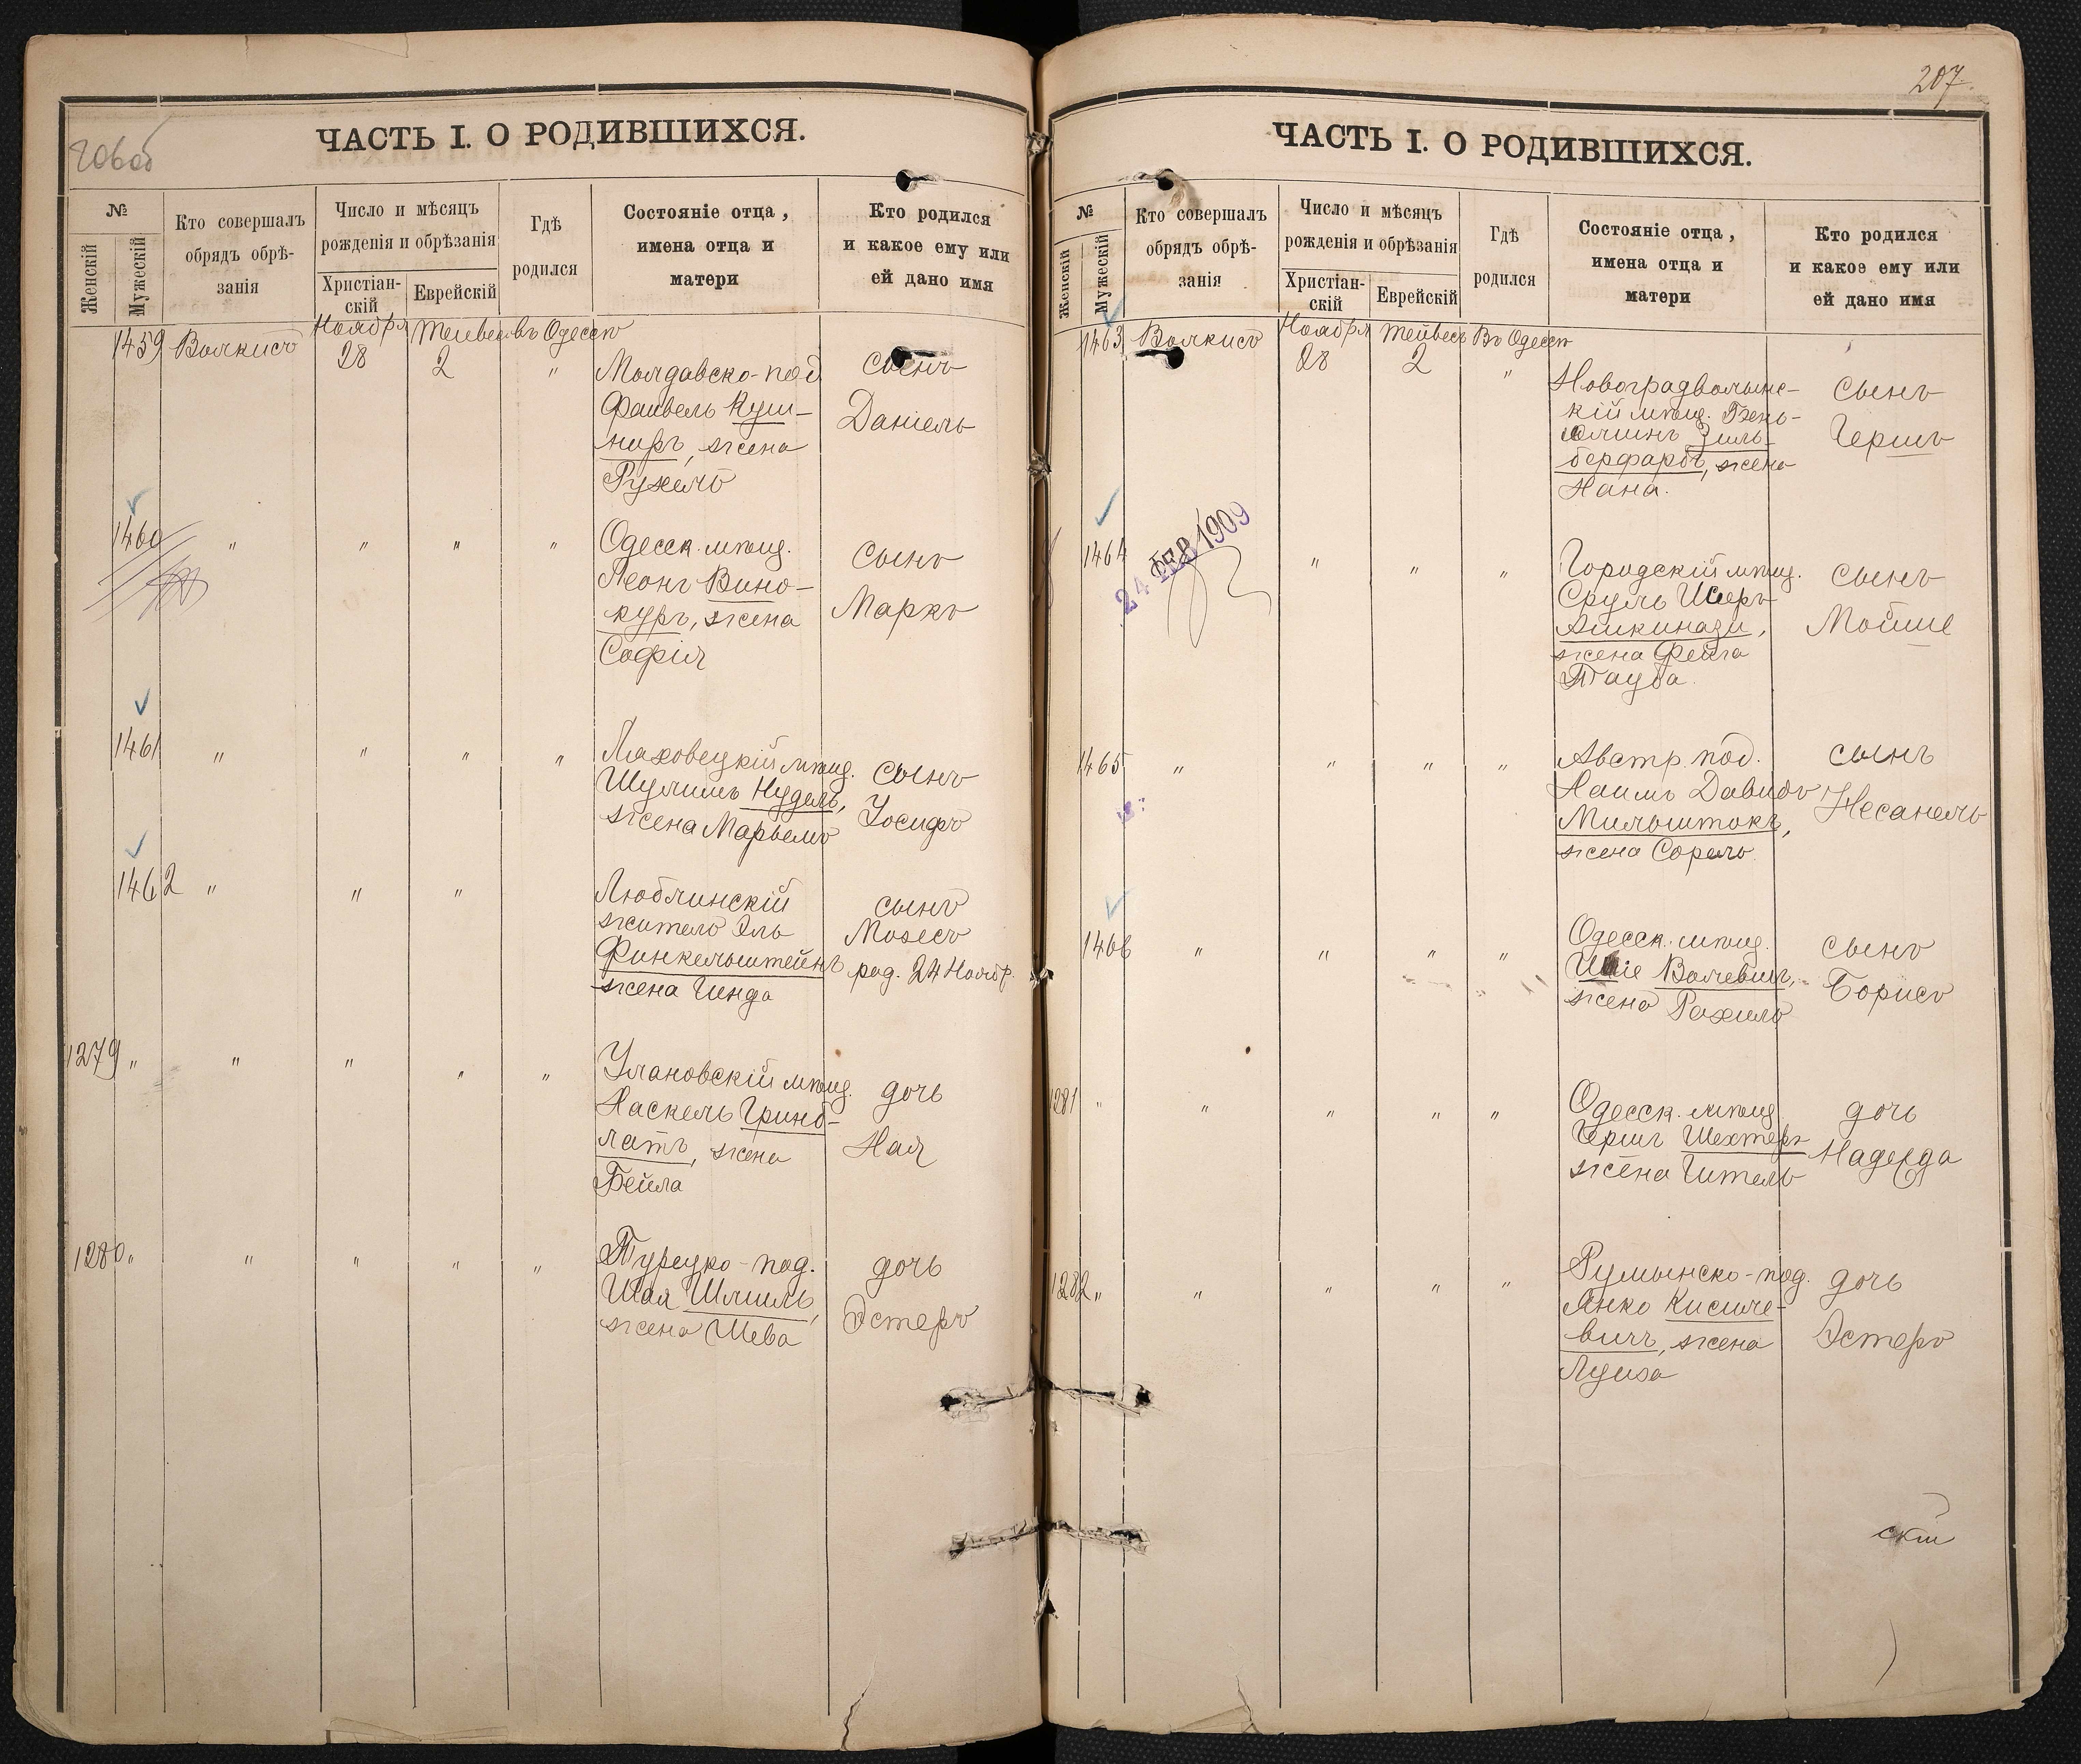 206об
ЧАСТЬ I. О РОДИВШИХСЯ.
№
Женскій
Мужескій
Кто совершалъ
обрядъ обрѣ-
занія
Число и мѣсяцъ
рожденія и обрѣзанія
Христіан-
скій
Еврейскій
Гдѣ
родился
Состояніе отца,
имена отца и
матери
Кто родился
и какое ему или
ей дано имя
1459 Волкисъ Ноября 28 Тейвесъ 2 въ Одессѣ "
Молдавско-под
Файвель Куш-
ниръ, жена
Рухель
сынъ
Даніель
1460 " " " "
Одесск. мѣщ.
Леонъ Вино-
куръ, жена
Софія
сынъ
Маркъ
1461 " " " "
Ляховецкій мѣщ.
Шулимъ Нудель,
жена Марьемъ
сынъ
Іосифъ
1462 " " "
Люблинскій
житель Эль
Финкельштейнъ
жена Гинда
сынъ
Мозесъ
род. 24 Ноябр.
1279 " " " " "
Улановскій мѣщ.
Хаскель Гринб-
латъ, жена
Бейла
дочь
Хая
1280 " " " " "
Турецко-под.
Шая Шмиль,
жена Шева
дочь
Эстеръ
207.
ЧАСТЬ I. О РОДИВШИХСЯ.
№
Женскій
Мужескій
Кто совершалъ
обрядъ обрѣ-
занія
Число и мѣсяцъ
рожденія и обрѣзанія
Христіан-
скій
Еврейскій
Гдѣ
родился
Состояніе отца,
имена отца и
матери
Кто родился
и какое ему или
ей дано имя
1463 Волкисъ Ноября 28 Тейвесъ 2 Въ Одессѣ "
Новоградволынс-
кій мѣщ. Бень-
юминъ Зиль-
берфарбъ, жена
Хана.
сынъ
Гершъ
1464 " " "
24 ФЕВ 1909
Городскій мѣщ.
Сруль Шлеръ
Ашкинази,
жена Фейга
Тауба.
сынъ
Мойше
1465 " " " "
Австр. под.
Хаимъ Давидъ
Мильштокъ,
жена Сорель.
сынъ
Несанель
1466 " " " "
Одесск. мѣщ.
Волевичъ,
жена Рахиль
сынъ
Борисъ
1281 " " " " "
Одесск. мѣщ.
Гершъ Шехтеръ
жена Гитель
дочь
Надежда
1282 " " " " "
Румынско-под.
Янко Кисиле-
вичъ, жена
Луиза
дочь
Эстеръ
скій